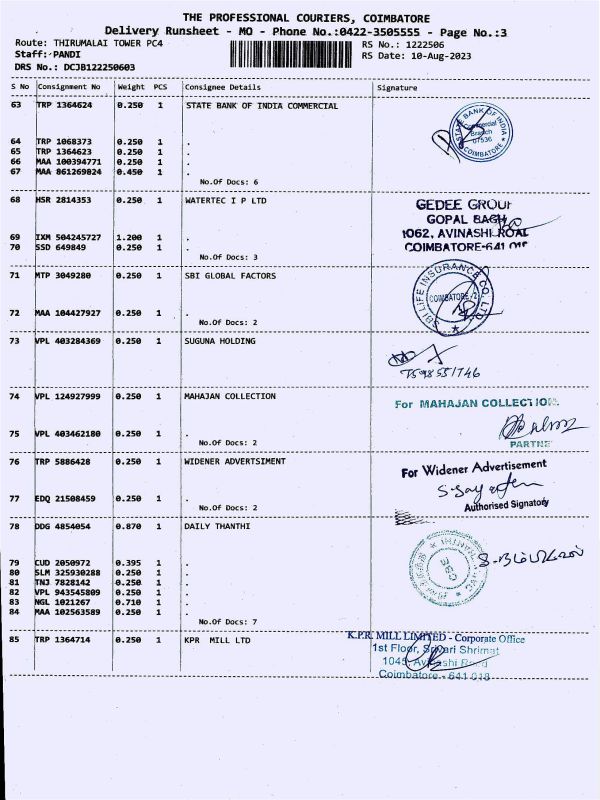 THE PROFESSIONAL COURIERS, COIMBATORE
Delivery Runsheet - MO - Phone No.:0422-3505555 - Page No.:3
Route: THIRUMALAI TOWER PC4 RS No.: 1222506
Staff: PANDI RS Date: 10-Aug-2023
DRS No.: DCJB122250603
S No Consignment No Weight PCS Consignee Details Signature
63 TRP 1364624 0.250 1 STATE BANK OF INDIA COMMERCIAL
STATE BANK OF INDIA
Commercial
Branch
07536
COIMBATORE
64 TRP 1068373 0.250 1 .
65 TRP 1364623 0.250 1 .
66 MAA 100394771 0.250 1 .
67 MAA 861269824 0.450 1 .
No.Of Docs: 6
68 HSR 2814353 0.250 1 WATERTEC I P LTD
GEDEE GROUP
GOPAL BAGH
1062, AVINASHI ROAD
COIMBATORE-641 018
69 IXM 504245727 1.200 1 .
70 SSD 649849 0.250 1 .
No.Of Docs: 3
71 MTP 3049280 0.250 1 SBI GLOBAL FACTORS
SBI LIFE INSURANCE CO. LTD
COIMBATORE-2
72 MAA 104427927 0.250 1 .
No.Of Docs: 2
73 VPL 403284369 0.250 1 SUGUNA HOLDING
7598551746
74 VPL 124927999 0.250 1 MAHAJAN COLLECTION
For MAHAJAN COLLECTION.
75 VPL 403462180 0.250 1 .
No.Of Docs: 2
PARTNE
76 TRP 5886428 0.250 1 WIDENER ADVERTSIMENT
For Widener Advertisement
77 EDQ 21508459 0.250 1 .
No.Of Docs: 2
Authorised Signatory
78 DDG 4854054 0.870 1 DAILY THANTHI
79 CUD 2050972 0.395 1 .
80 SLM 325930288 0.250 1 .
81 TNJ 7828142 0.250 1 .
82 VPL 943545809 0.250 1 .
83 NGL 1021267 0.710 1 .
84 MAA 102563589 0.250 1 .
No.Of Docs: 7
85 TRP 1364714 0.250 1 KPR MILL LTD
K.P.R. MILL LIMITED - Corporate Office
1st Floor, Srivari Shrimat
1045, Avinashi Road
Coimbatore - 641 018